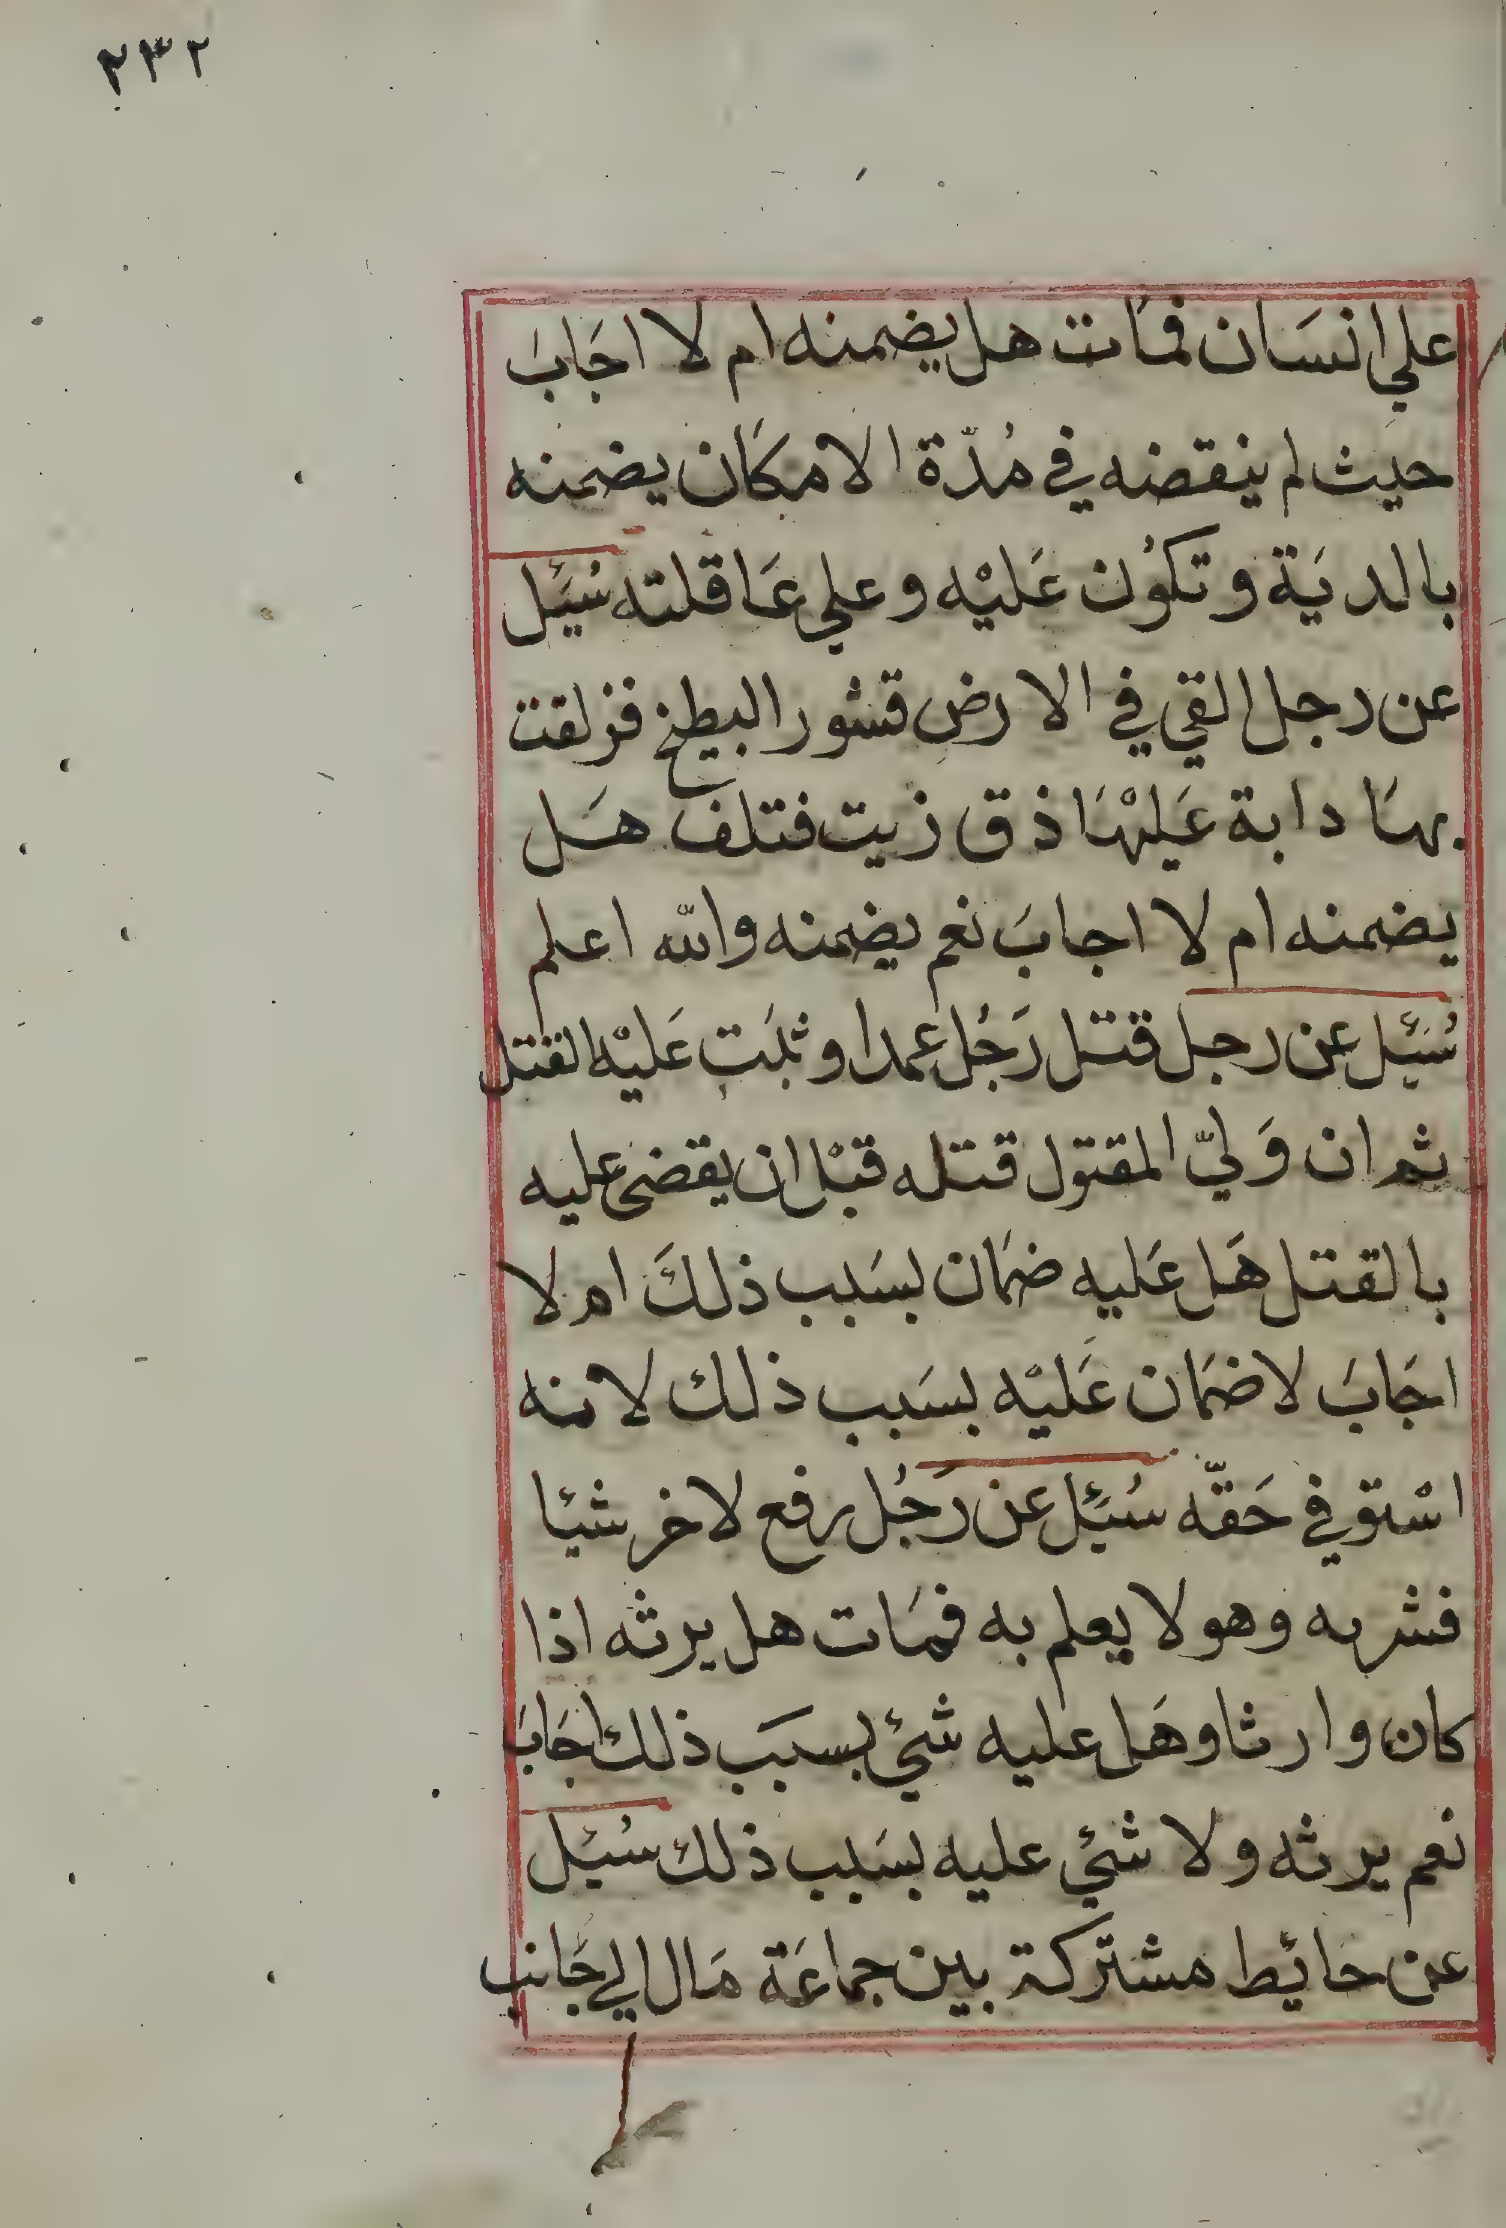 ٢٣٢
علي انسَان فمَات هل يضمنه ام لا اجَابَ
حيث لم ينقضه في مُدّة الامكَان يضمنه
بالديَة وتكوُن عَليْه وعلي عَاقلته سُئِل
عن رجل القي في الارض قشور البطيخ فزلقت
بهَا دابة عَليْهَا ذق زيت فتلف هَل
يضمنه ام لا اجابَ نعم يضمنه والله اعلم
سُئِل عن رجل قتل رَجُل عمدا وثبَت عَليْه القتل
ثم ان وَليّ المقتول قتله قبْل ان يقضى عليه
بالقتل هَل عَليه ضمَان بسَبب ذلكَ ام لا
اجَابَ لا ضمَان عَليْه بسَبب ذلك لانه
اسْتوفي حَقّه سُئِل عن رَجُل رفع لاخر شيئا
فشربه وهو لا يعلم به فمَات هل يرثه اذا
كان وارثا وهَل عليه شئ بسبَب ذلك اجَابَ
نعم يرثه ولا شئ عليه بسَبب ذلك سُئِل
عن حائِط مشتركة بين جماعَة مَال الي جَانب